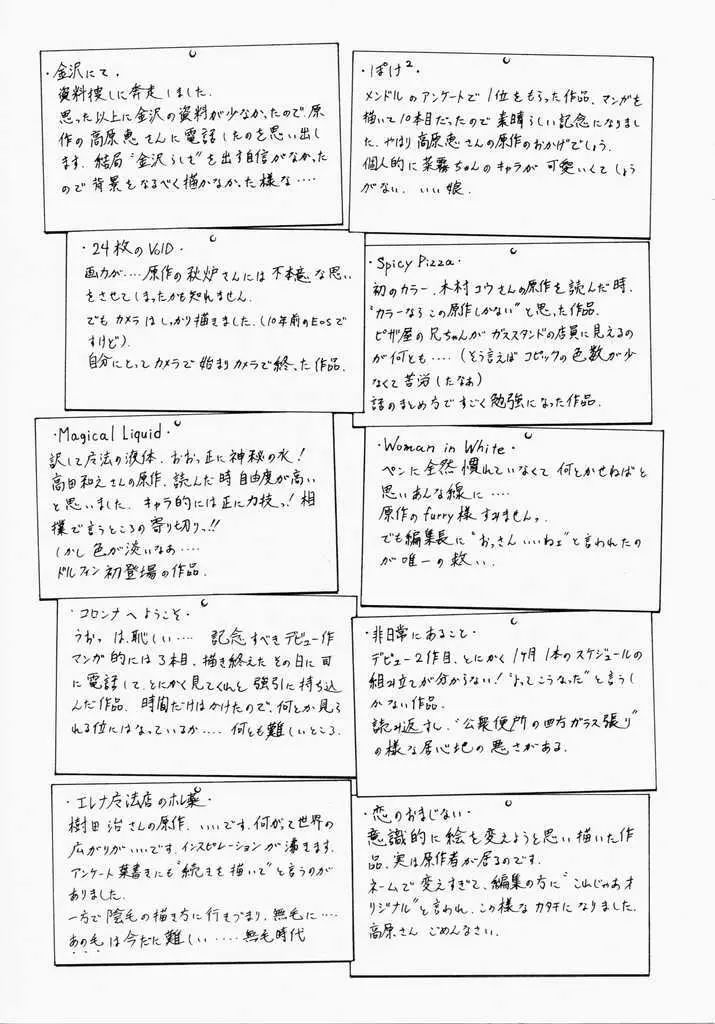 ・金沢にて・
資料捜しに奔走しました.
思った以上に金沢の資料が少なかったので、原
作の高原恵さんに電話したのを思い出し
ます. 結局"金沢らしさ"を出す自信がなかった
ので背景をなるべく描かなかった様な‥‥
・ぽけ²・
メンドルのアンケートで1位をもらった作品、マンガを
描いて10本目だったので素晴らしい記念になりまし
た. やはり高原恵さんの原作のおかげでしょう.
個人的に菜霧ちゃんのキャラが可愛いくてしょう
がない. いい娘.
・24枚のVOID・
画力が‥‥原作の秋炉さんには不本意な思い
をさせてしまったかも知れません.
でもカメラはしっかり描きました.(10年前のEOSで
すけど).
自分にとってカメラで始まりカメラで終った作品.
・Spicy Pizza・
初のカラー. 木村コウさんの原作を読んだ時.
"カラーならこの原作しかない"と思った作品.
ピザ屋の兄ちゃんがガススタンドの店員に見えるの
が何とも‥‥(そう言えばコピックの色数が少
なくて苦労したなぁ)
話のまとめ方ですごく勉強になった作品.
・Magical Liquid・
訳して魔法の液体. おおっ正に神秘の水!
高田和えさんの原作. 読んだ時自由度が高い
と思いました. キャラ的には正に力技っ! 相
撲で言うところの寄り切りっ!!
しかし色が淡いなぁ‥‥
ドルフィン初登場の作品.
・Woman in White・
ペンに全然慣れていなくて何とかせねばと
思いあんな線に‥‥
原作のfurry様すみませんっ.
でも編集長に"おっさんいいねェ"と言われたの
が唯一の救い.
・コロンナへようこそ・
うおっ は、恥しい‥‥ 記念すべきデビュー作
マンガ的には3本目. 描き終えたその日に司
に電話して、とにかく見てくれと強引に持ち込
んだ作品. 時間だけはかけたので、何とか見ら
れる位にはなっているか‥‥何とも難しいところ.
・非日常にあること・
デビュー2作目. とにかく1ヶ月1本のスケジュールの
組み立てが分からない! "よってこうなった"と言うし
かない作品.
読み返すし、"公衆便所の四方ガラス張り"
の様な居心地の悪さがある.
・エレナ魔法店のホレ薬・
樹田治さんの原作. いいです. 何がって世界の
広がりがいいです. インスピレーションが沸きます.
アンケート葉書きにも"続きを描いて"と言うのが
ありました.
一方で陰毛の描き方に行きづまり、無毛に‥‥
あの毛は今だに難しい‥‥無毛時代
・恋のおまじない・
意識的に絵を変えようと思い描いた作
品. 実は原作者が居るのです.
ネームで変えすぎて、編集の方に"これじゃあオ
リジナル"と言われ、この様なカタチになりました.
高原さん ごめんなさい.